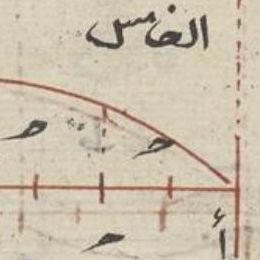 الخامس
ح
ح
أ
ح